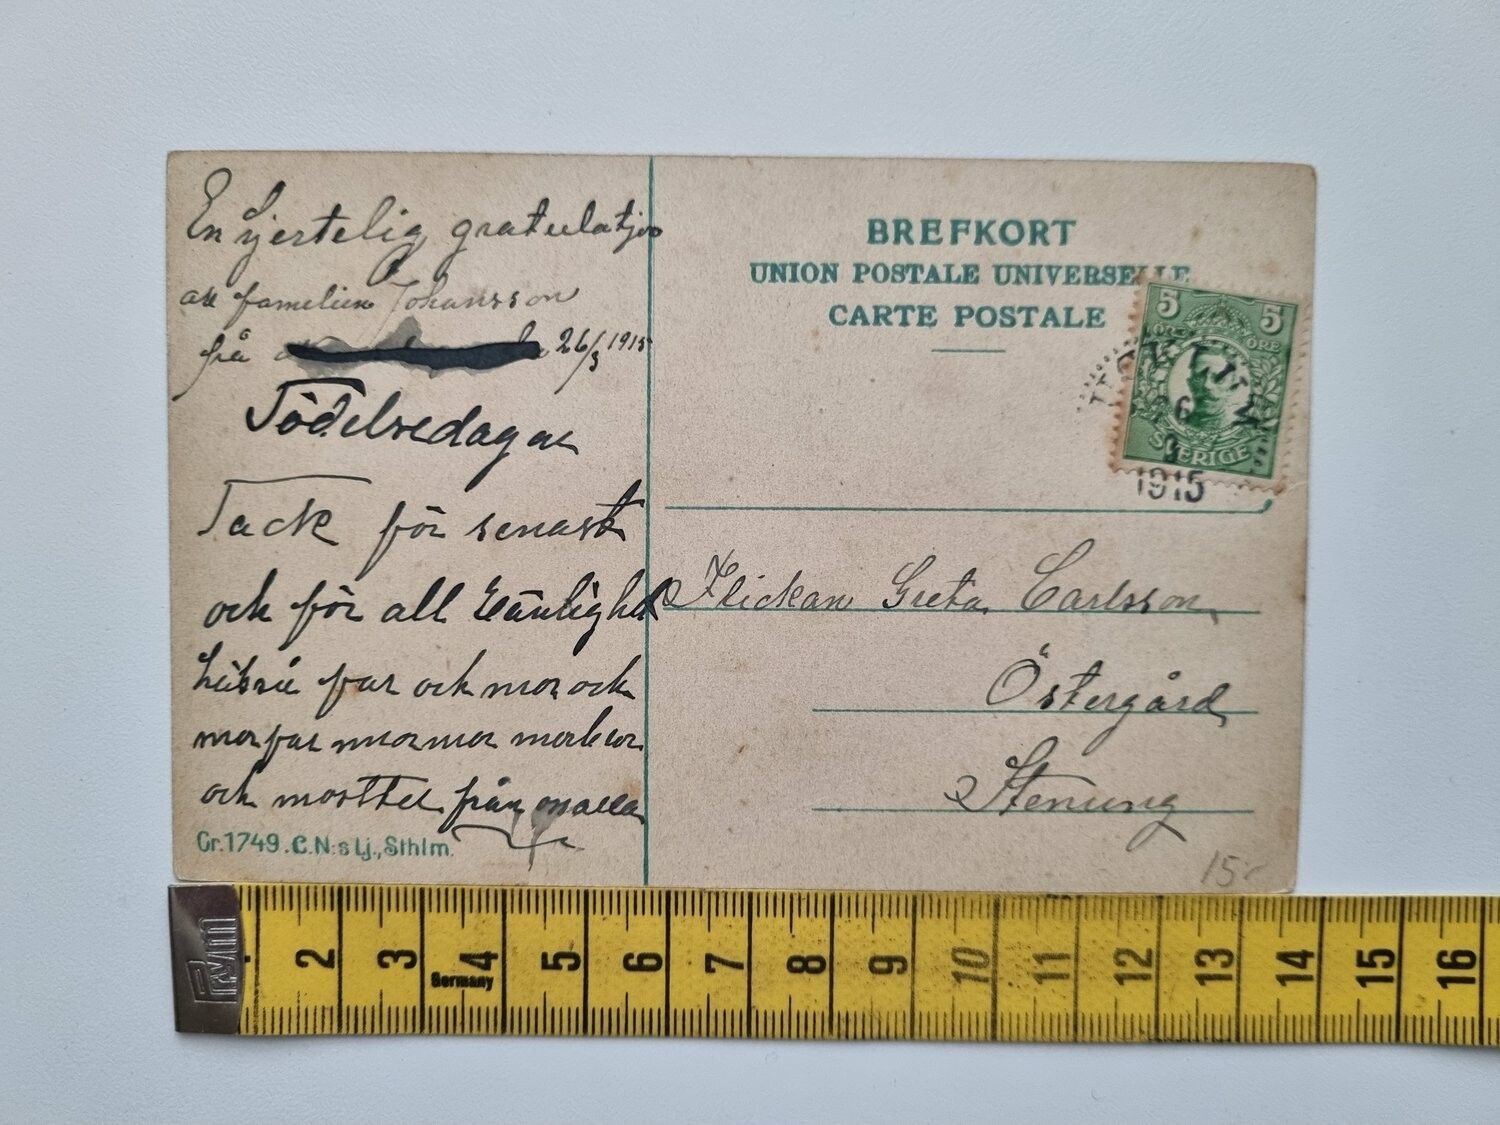 En hjertelig gratulatjon
av familien Johansson
frå 26/3 1915
Födelsedagen
Tack för senast
och för all Vänlighet
hälsa far och mor och
morfar mormor morbror
och moster från alla
Gr.1749.C.N:s Lj., Sthlm.
BREFKORT
UNION POSTALE UNIVERSELLE
CARTE POSTALE
5 5
ÖRE ÖRE
SVERIGE
1915
Flickan Greta Carlsson
Östergård
Stenung
15:-
PRYM
2 3 4 5 6 7 8 9 10 11 12 13 14 15 16
Germany